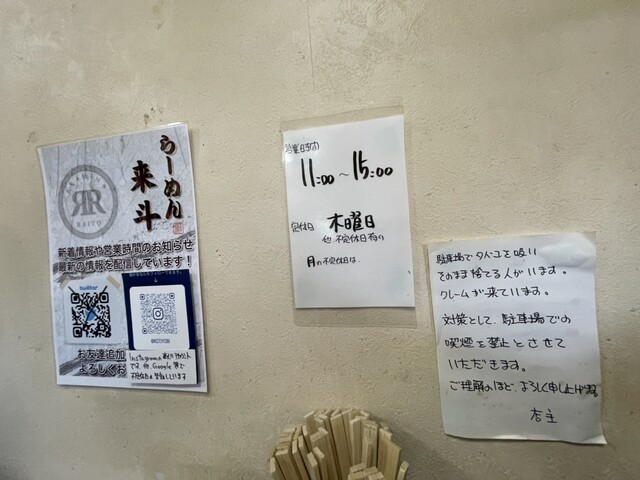 らーめん
来斗
RAITO
新着情報や営業時間のお知らせ
最新の情報を配信しています！
twitter
お友達追加
よろしくお
Instagramは
です。他、Google 等で
営業時間
11:00～15:00
定休日 木曜日
他、不定休日有り
月の不定休日は、
駐車場でタバコを吸い
そのまま捨てる人がいます。
クレームが来ています。
対策として、駐車場での
喫煙を禁止とさせて
いただきます。
ご理解のほど、よろしく申し上げます。
店主